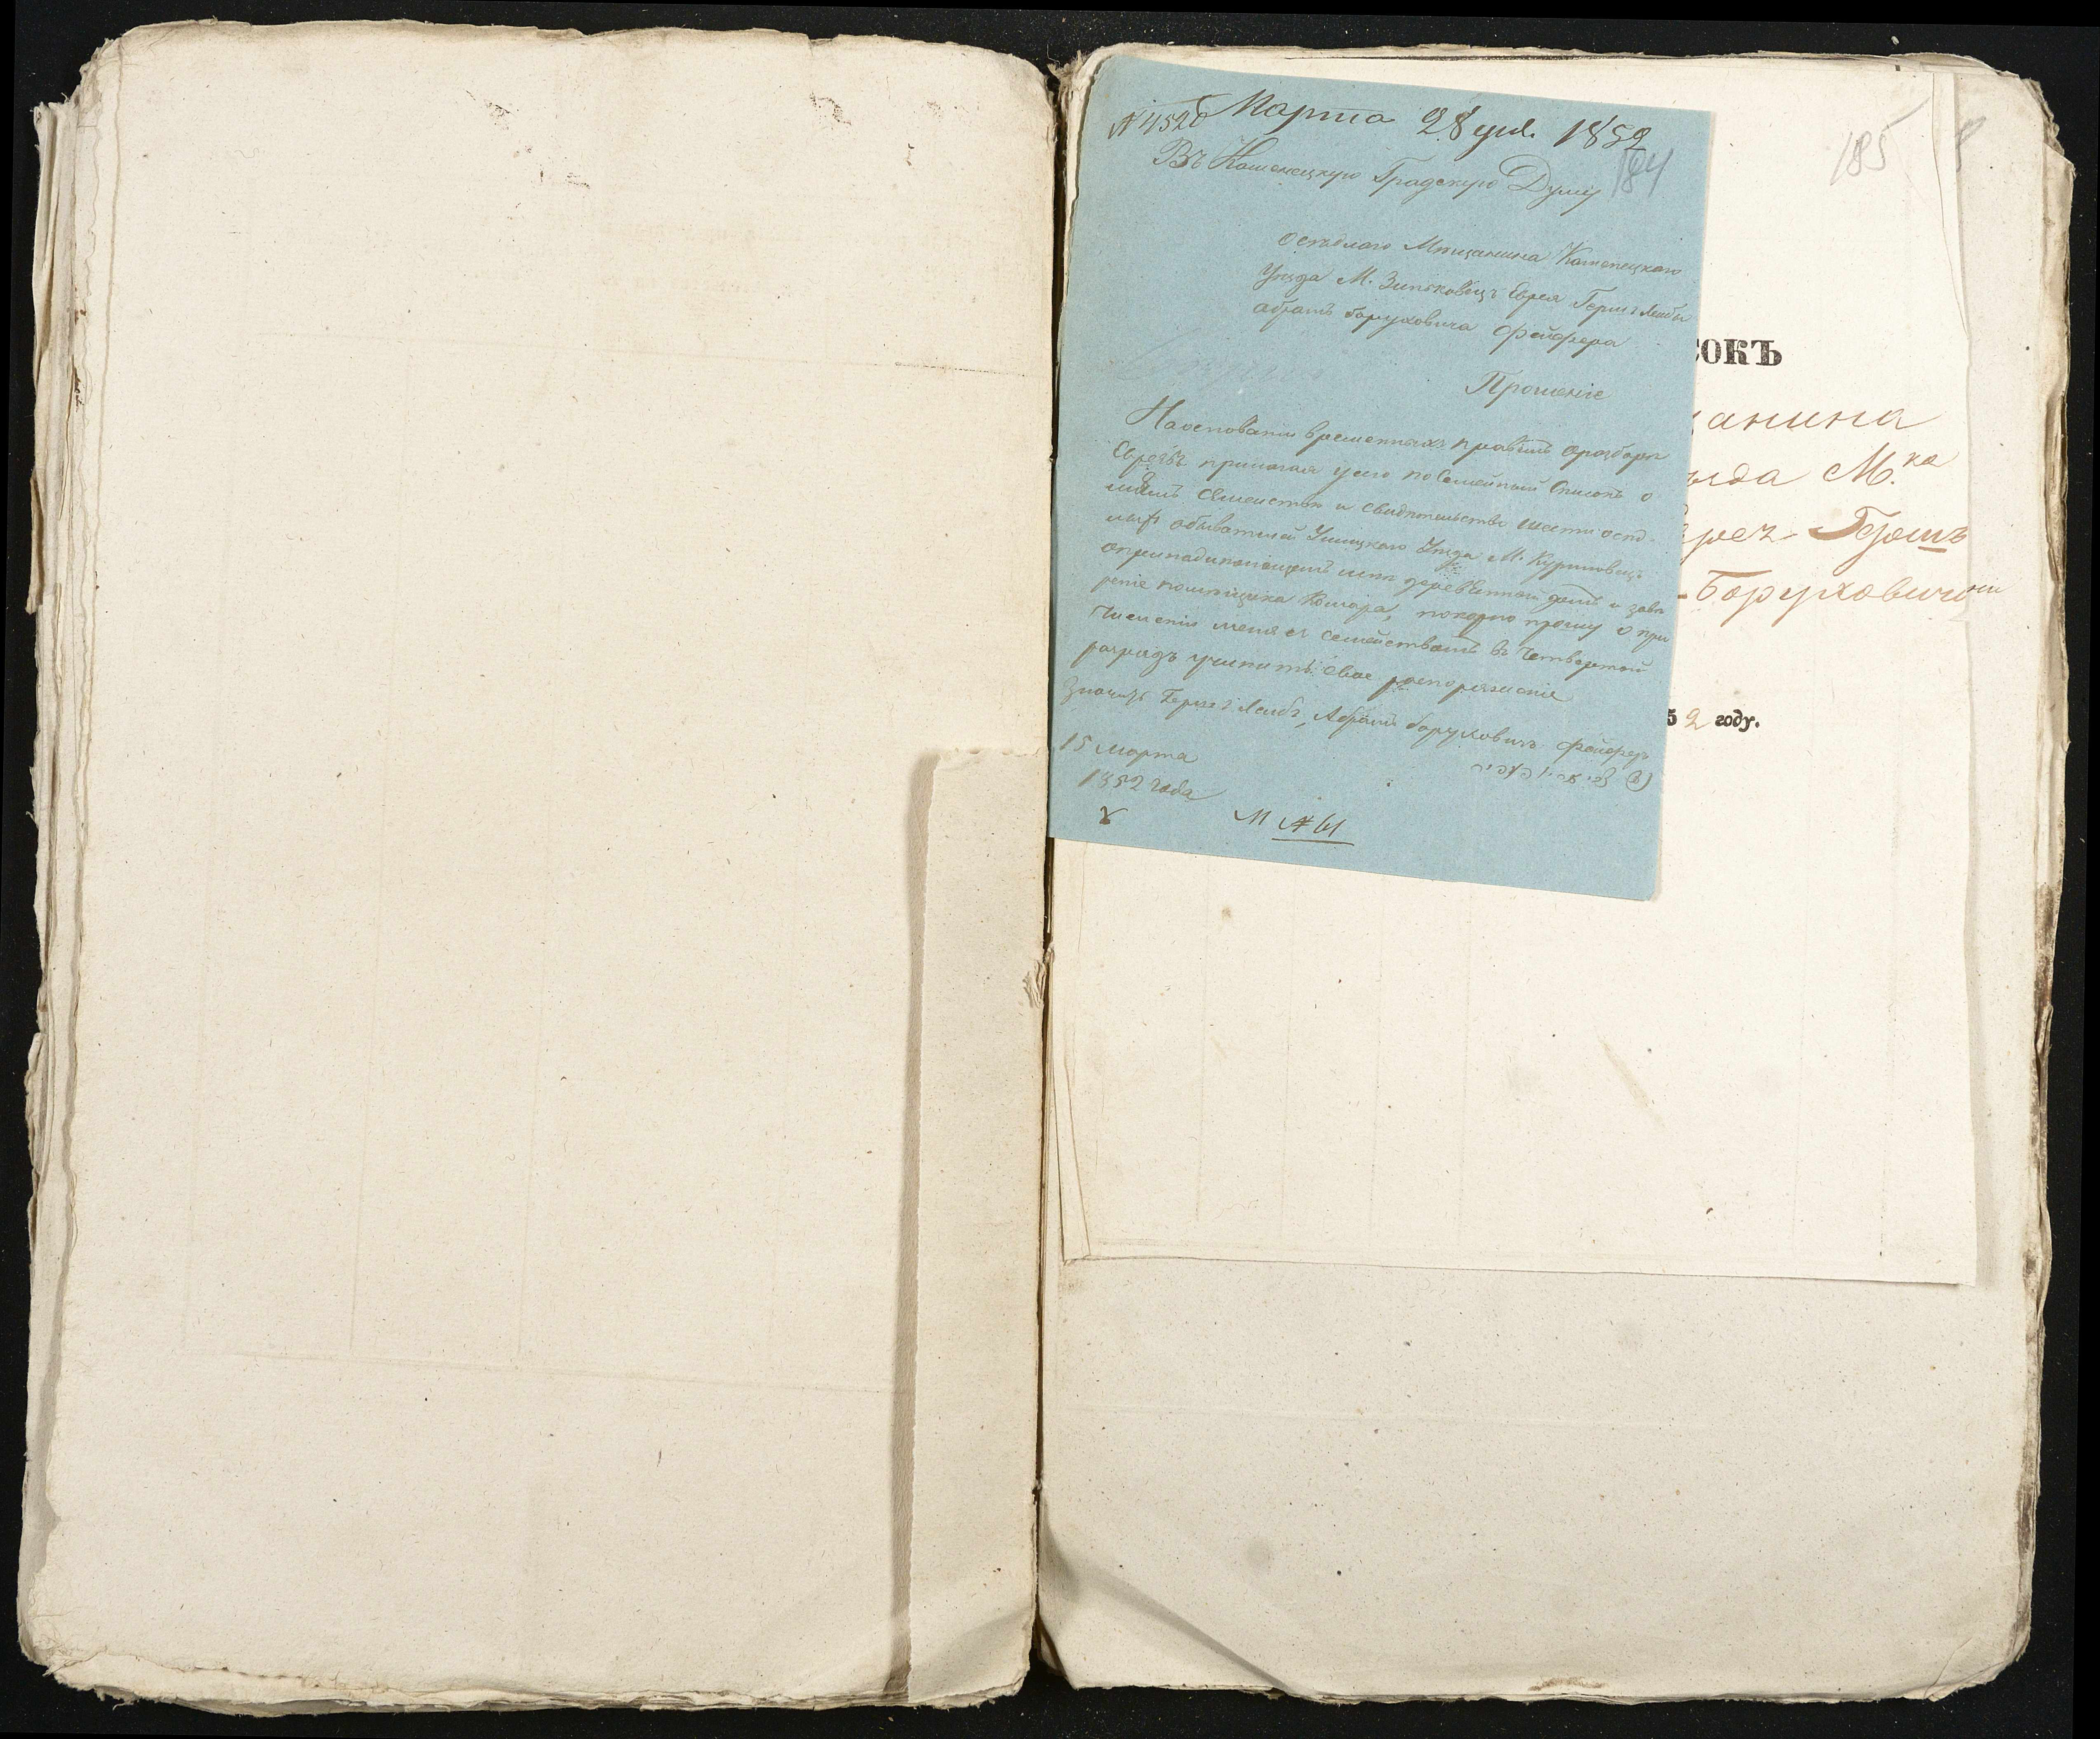 № 4526 Марта 28 дня 1852
184
Въ Каменецкую Градскую Думу
осѣдлаго Мѣщанина Каменецкаго
Уѣзда М. Зиньковецъ Еврея Герш Лейбы
Абрамъ Боруховича Фейфера
Прошеніе
На основаніи временныхъ правилъ о разборѣ
Евреевъ прилагая у сего посемейный Списокъ о
моемъ Семействѣ и свидѣтельство шести осѣд-
лыхъ обывателей Ушицкаго Уѣзда М. Куриловецъ
о принадлежащемъ мнѣ деревянномъ домѣ и завѣ
реніе помѣщика Комара, покорно прошу о при
численіи меня съ семействомъ въ Четвертой
разрядъ учинить свое распоряженіе
Герш Лейбъ, Абрамъ Боруховичъ Фейферъ
15 марта
1852 года
М № 61
185
сокъ
анина
ѣзда М.ка
Гершъ
-Боруховичъ
5 2 году.